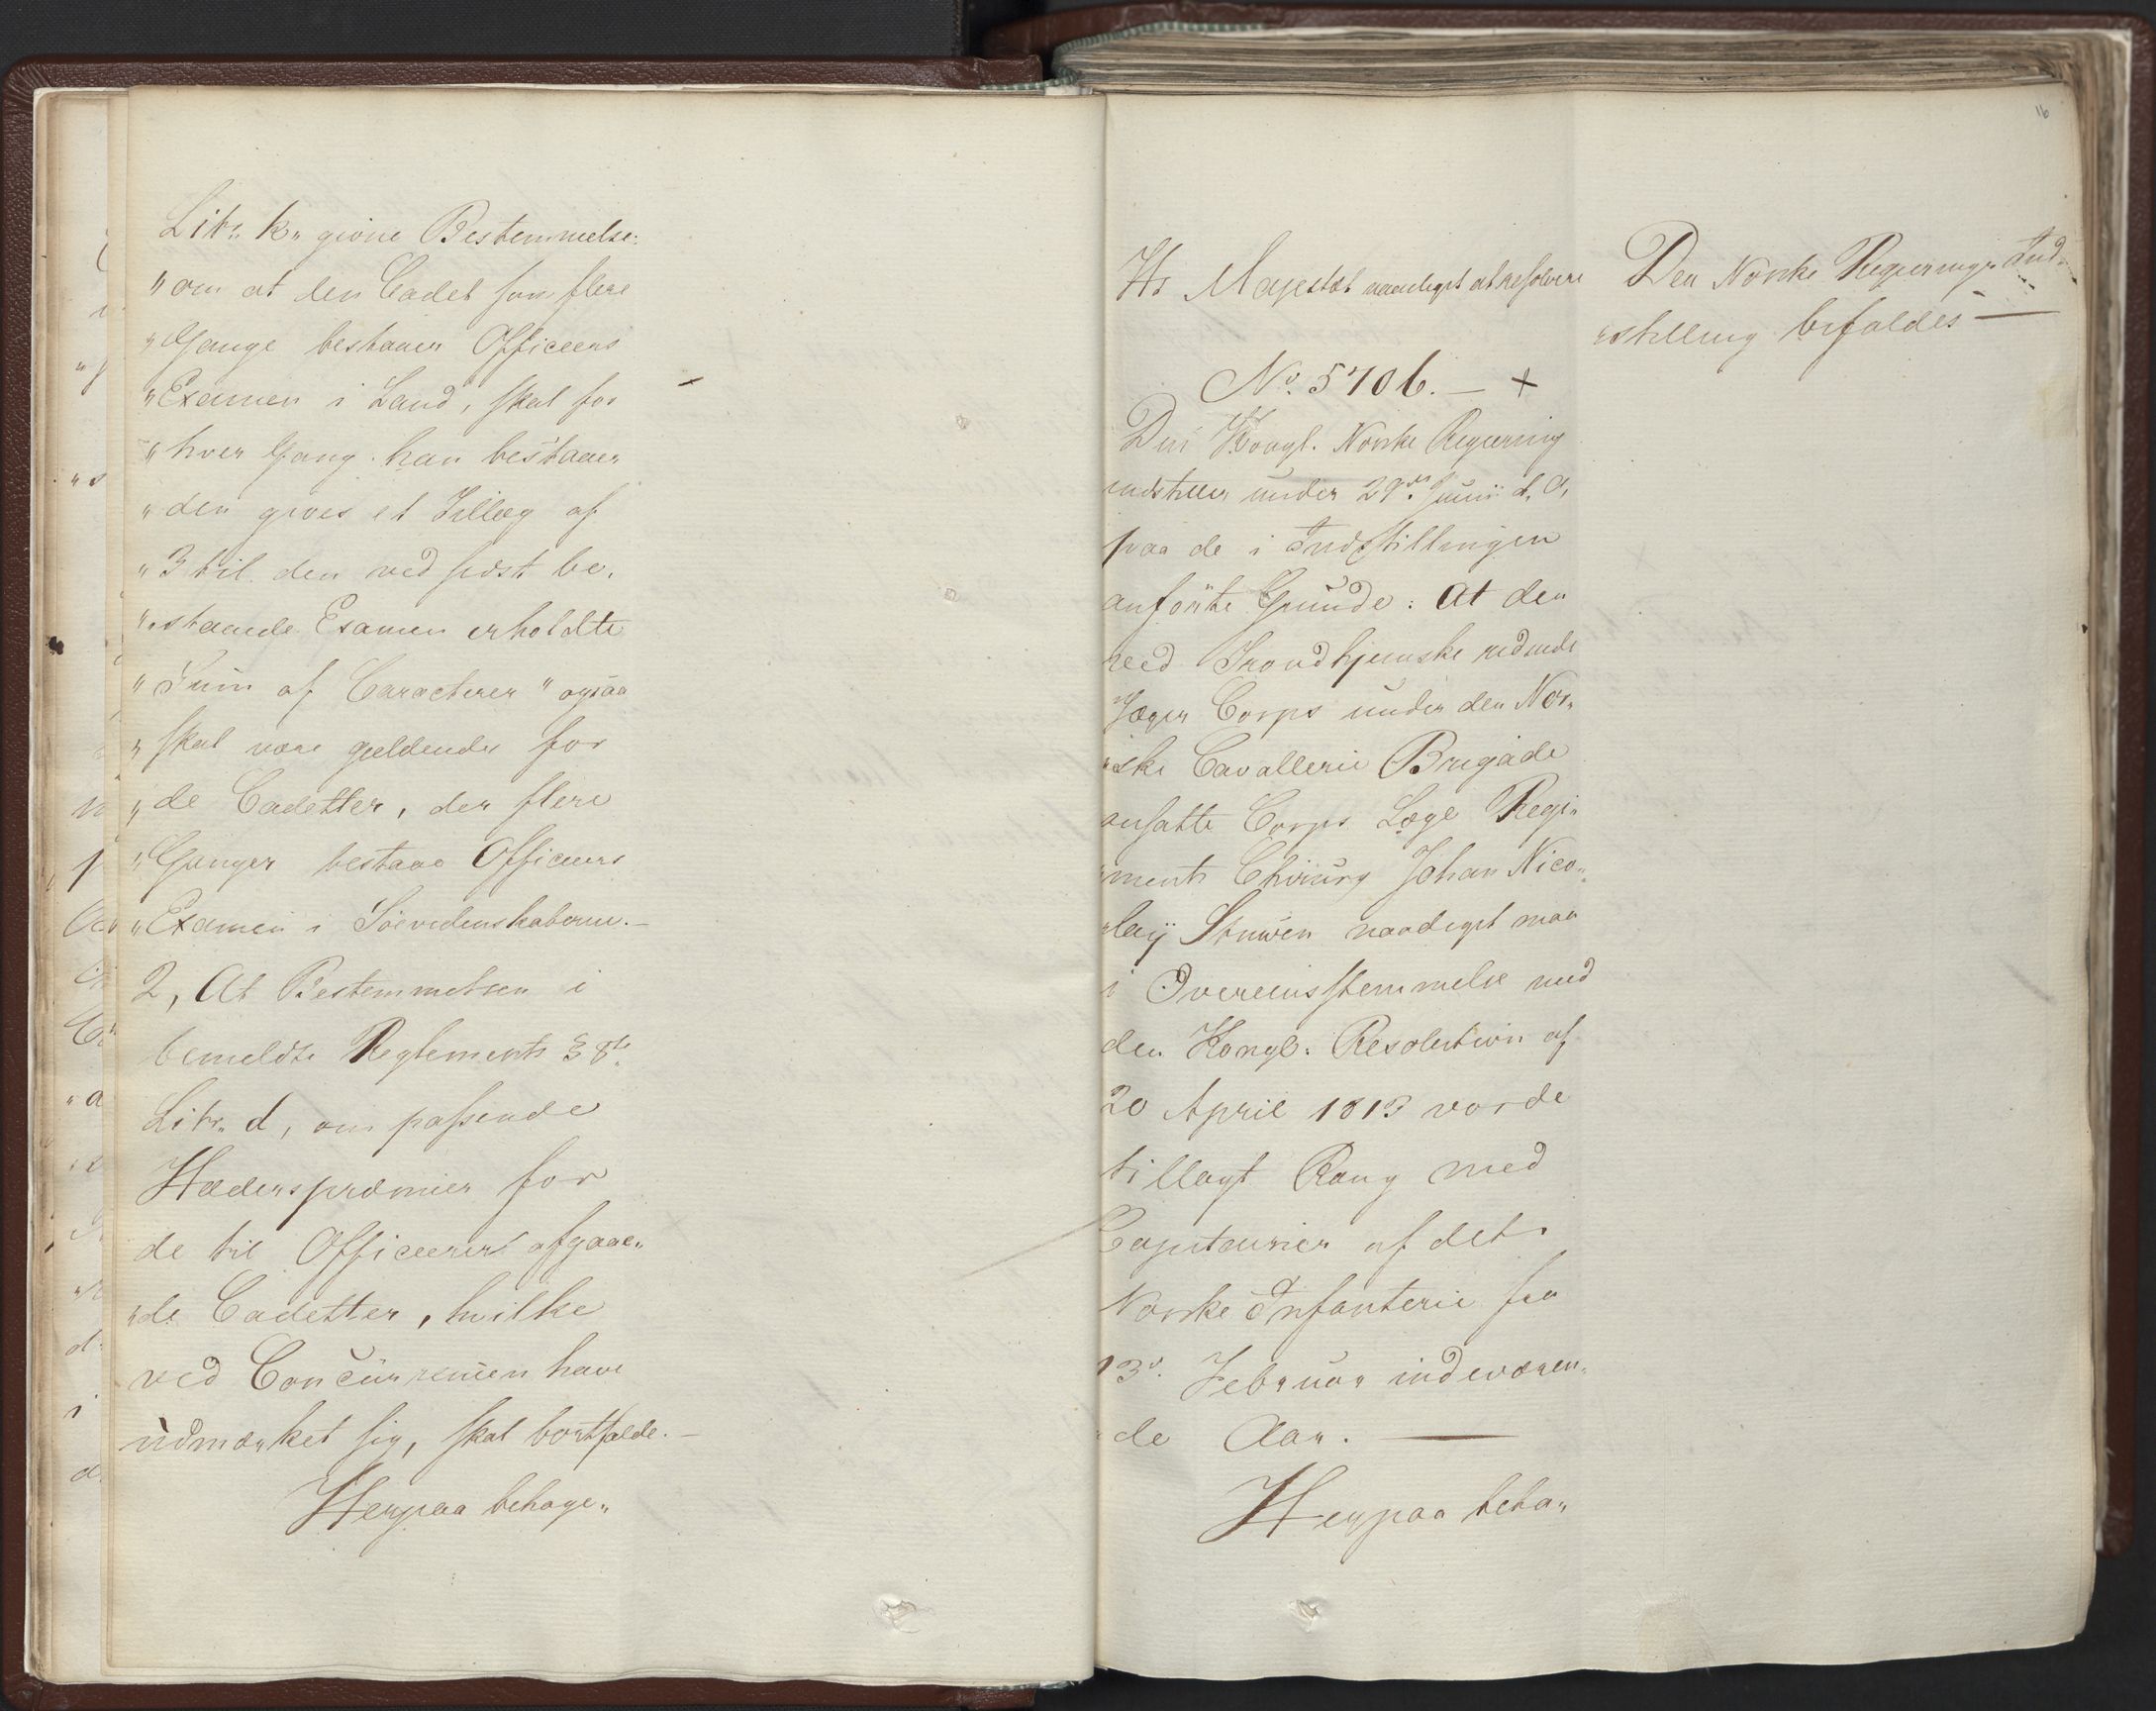 Litr. k. givne Bestemmelse:
"om at den Cadet som flere
"Gange bestaaer Officeers
"Examen i Land, skal for
"hver Gang han bestaaer
"den gives et Tillæg af
"3 til den ved sidst be„
"„staaede Examen erholdte
"Sum af Caracterer" ogsaa
"skal være gjeldende for
"de Cadetter, der flere
"Ganger bestaae Officeers
"Examen i Søevidenskaberne.—
2, At Bestemmelsen i
bemeldte Reglements § 8de
Litr. d, om passende
Hæderspræmier for
de til Officeerer afgaae„
„de Cadetter, hvilke
ved Concurrencen have
udmærket sig, skal bortfalde.—
Herpaa behage„
16
Hs Majestæt naadigst at resolvere
No. 5706. — +
Den Kongl. Norske Regjering
indstiller under 29de Junii d. A.
paa de i Indstillingen
anførte Grunde: At den
ved Trondhjemske ridende
Jæger Corps under den Nor„
„ske Cavallerie Brigade
ansatte Corps Læge Regi„
„ments Chirurg Johan Nico„
„laij Stuwen naadigst maa
i Overeensstemmelse med
den Kongl. Resolution af
20 April 1813 vorde
tillagt Rang med
Capitainer af det
Norske Infanterie fra
13de Februar indeværen„
„de Aar. —
Herpaa beha„
Den Norske Regjerings Ind„
„stilling bifaldes —